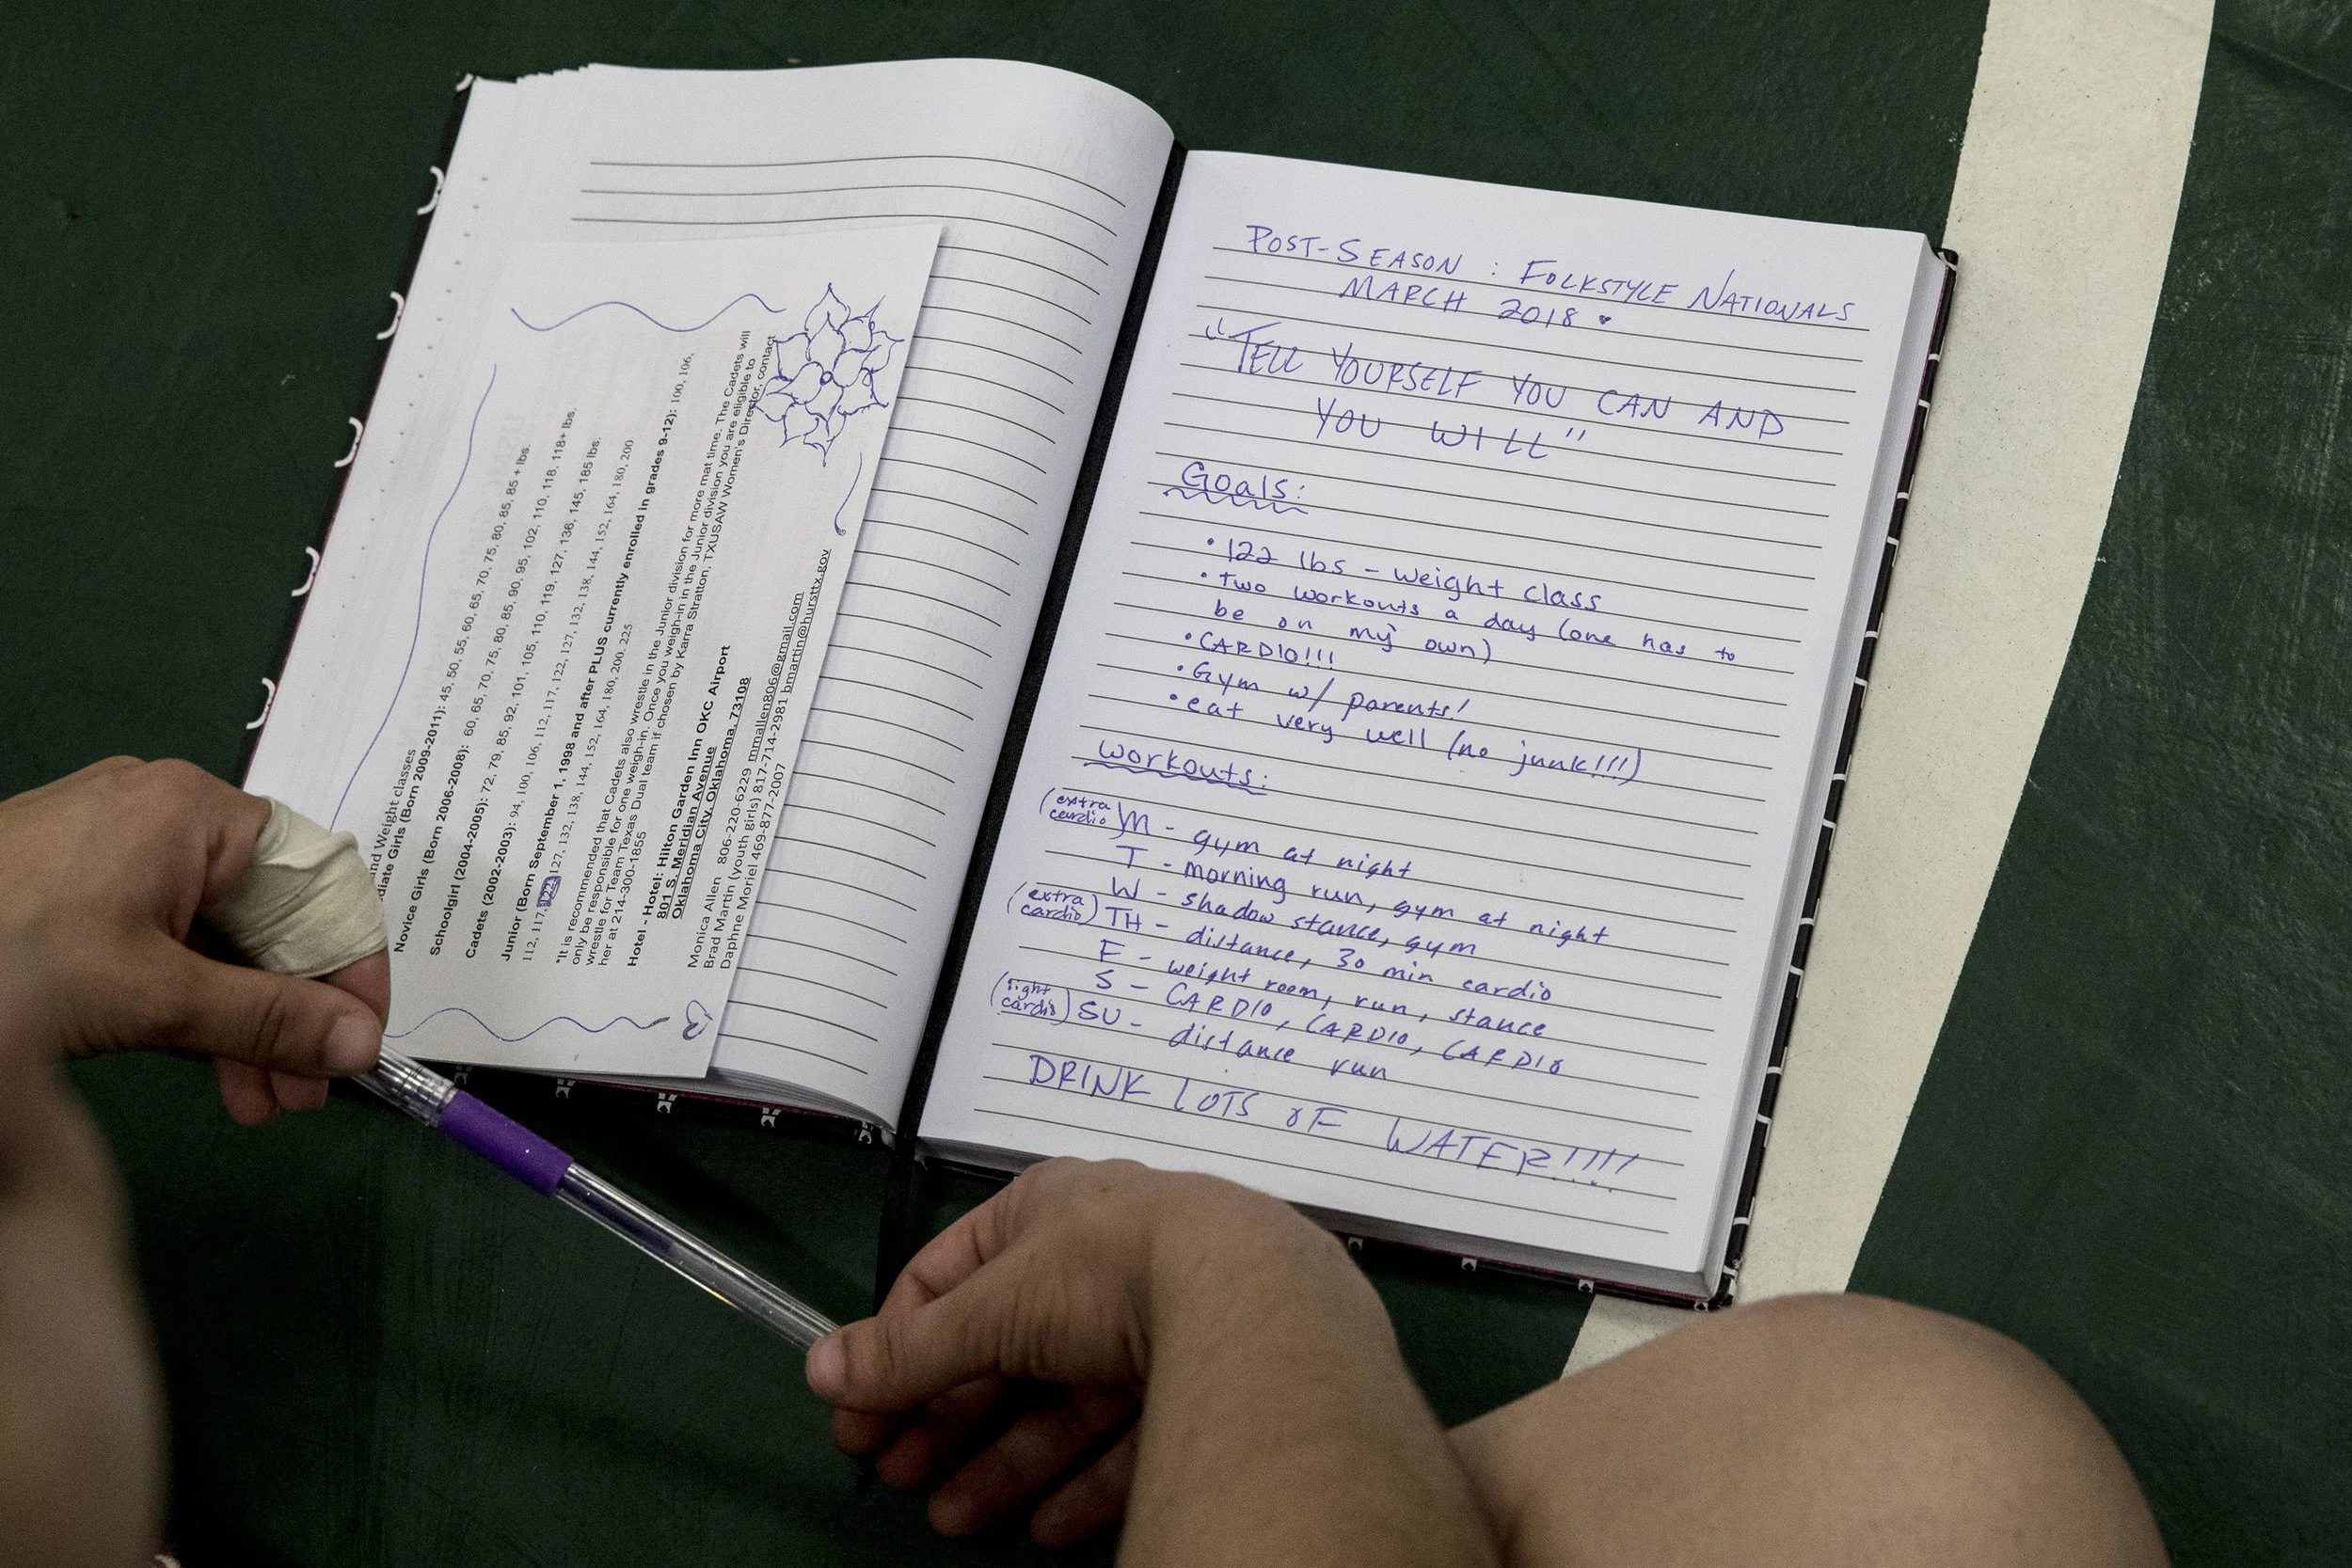 nd Weight classes
diate Girls (Born 2009-2011): 45, 50, 55, 60, 65, 70, 75, 80, 85, 85 + lbs.
Novice Girls (Born 2006-2008): 60, 65, 70, 75, 80, 85, 90, 95, 102, 110, 118, 118+ lbs.
Schoolgirl (2004-2005): 72, 79, 85, 92, 101, 105, 110, 119, 127, 136, 145, 185 lbs.
Cadets (2002-2003): 94, 100, 106, 112, 117, 122, 127, 132, 138, 144, 152, 164, 180, 200
Junior (Born September 1, 1998 and after PLUS currently enrolled in grades 9-12): 100, 106,
112, 117, 122, 127, 132, 138, 144, 152, 164, 180, 200, 225
*It is recommended that Cadets also wrestle in the Junior division for more mat time. The Cadets will
only be responsible for one weigh-in. Once you weigh-in in the Junior division you are eligible to
wrestle for Team Texas Dual team if chosen by Karra Stratton, TXUSAW Women's Director, contact
her at 214-300-1855
Hotel - Hotel: Hilton Garden Inn OKC Airport
801 S. Meridian Avenue
Oklahoma City, Oklahoma, 73108
Monica Allen 806-220-6229 mmallen806@gmail.com
Brad Martin (youth girls) 817-714-2981 bmartin@hursttx.gov
Daphne Moriel 469-877-2007
POST-SEASON : FOLKSTYLE NATIONALS
MARCH 2018
"TELL YOURSELF YOU CAN AND
YOU WILL"
Goals:
• 122 lbs - weight class
• two workouts a day (one has to
be on my own)
• CARDIO!!!
• Gym w/ parents!
• eat very well (no junk!!!)
workouts:
(extra cardio) M - gym at night
T - morning run, gym at night
W - shadow stance, gym
(extra cardio) TH - distance, 30 min cardio
F - weight room, run, stance
S - CARDIO, CARDIO, CARDIO
(light cardio) SU - distance run
DRINK LOTS OF WATER!!!!